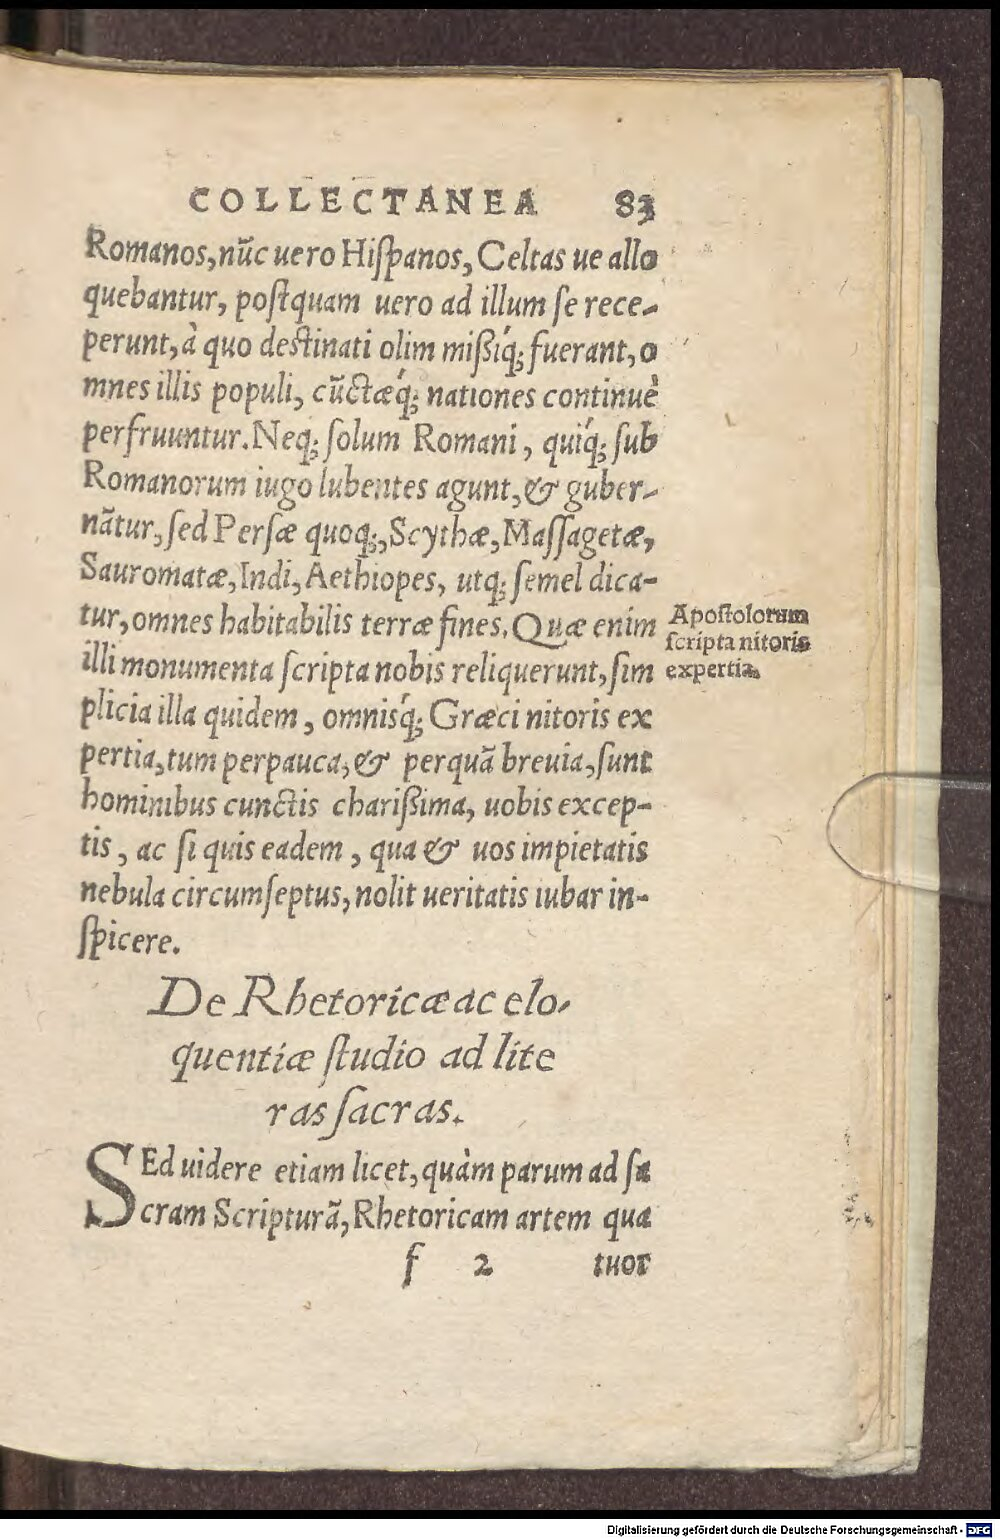 COLLECTANEA 83
Romanos, nūc uero Hiſpanos, Celtas ue allo
quebantur, poſtquam uero ad illum ſe rece-
perunt, à quo deſtinati olim mißíq; fuerant, o
mnes illis populi, cūctæq́; nationes continuè
perfruuntur. Neq; ſolum Romani, quíq; ſub
Romanorum iugo lubentes agunt, & guber-
nātur, ſed Perſæ quoq;, Scythæ, Maſſagetæ,
Sauromatæ, Indi, Aethiopes, utq; ſemel dica-
tur, omnes habitabilis terræ fines. Quæ enim
illi monumenta ſcripta nobis reliquerunt, ſim
plicia illa quidem, omnisq́; Græci nitoris ex
pertia, tum perpauca, & perquā breuia, ſunt
hominibus cunctis charißima, uobis excep-
tis, ac ſi quis eadem, qua & uos impietatis
nebula circumſeptus, nolit ueritatis iubar in-
ſpicere.
Apoſtolorum
ſcripta nitoris
expertia.
De Rhetoricæ ac elo-
quentiæ ſtudio ad lite
ras ſacras.
SEd uidere etiam licet, quàm parum ad ſa
cram Scripturā, Rhetoricam artem qua
f 2 tuor
Digitalisierung gefördert durch die Deutsche Forschungsgemeinschaft - DFG